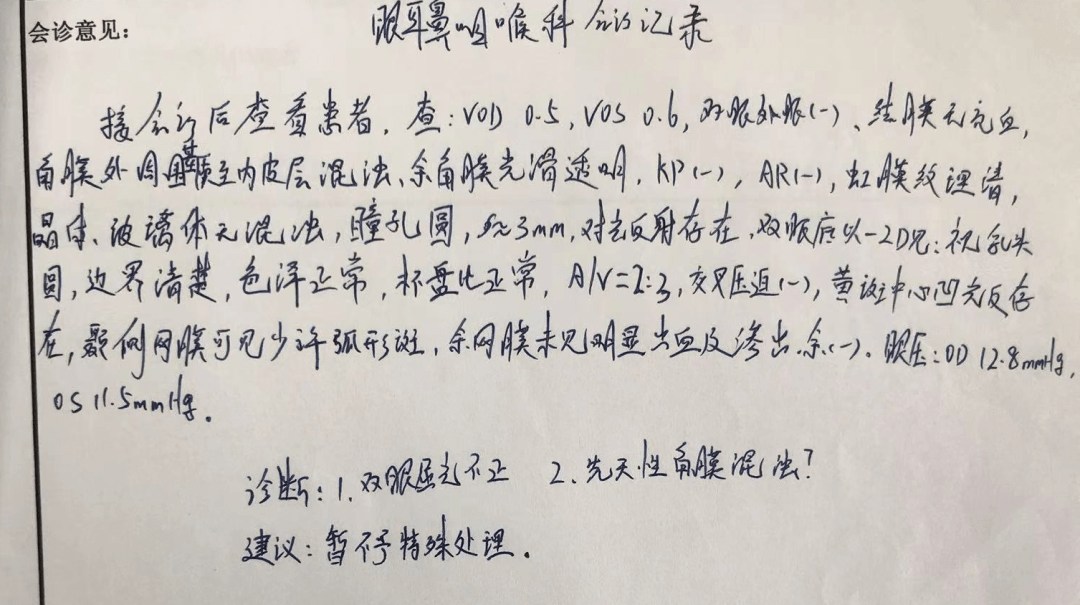 会诊意见:
眼耳鼻咽喉科会诊记录
接会诊后查看患者, 查: VOD 0.5, VOS 0.6, 双眼外眼(-)、结膜无充血,
角膜外周基质至内皮层混浊、余角膜光滑透明, KP(-), AR(-), 虹膜纹理清,
晶体、玻璃体无混浊, 瞳孔圆, φ≈3mm, 对光反射存在, 双眼底以-2D见: 视乳头
圆, 边界清楚, 色泽正常, 杯盘比正常, A/V=2:3, 交叉压迫(-), 黄斑中心凹光反存
在, 颞侧网膜可见少许弧形斑, 余网膜未见明显出血及渗出. 余(-). 眼压: OD 12.8mmHg,
OS 11.5mmHg.
诊断: 1. 双眼屈光不正 2. 先天性角膜混浊?
建议: 暂不予特殊处理.